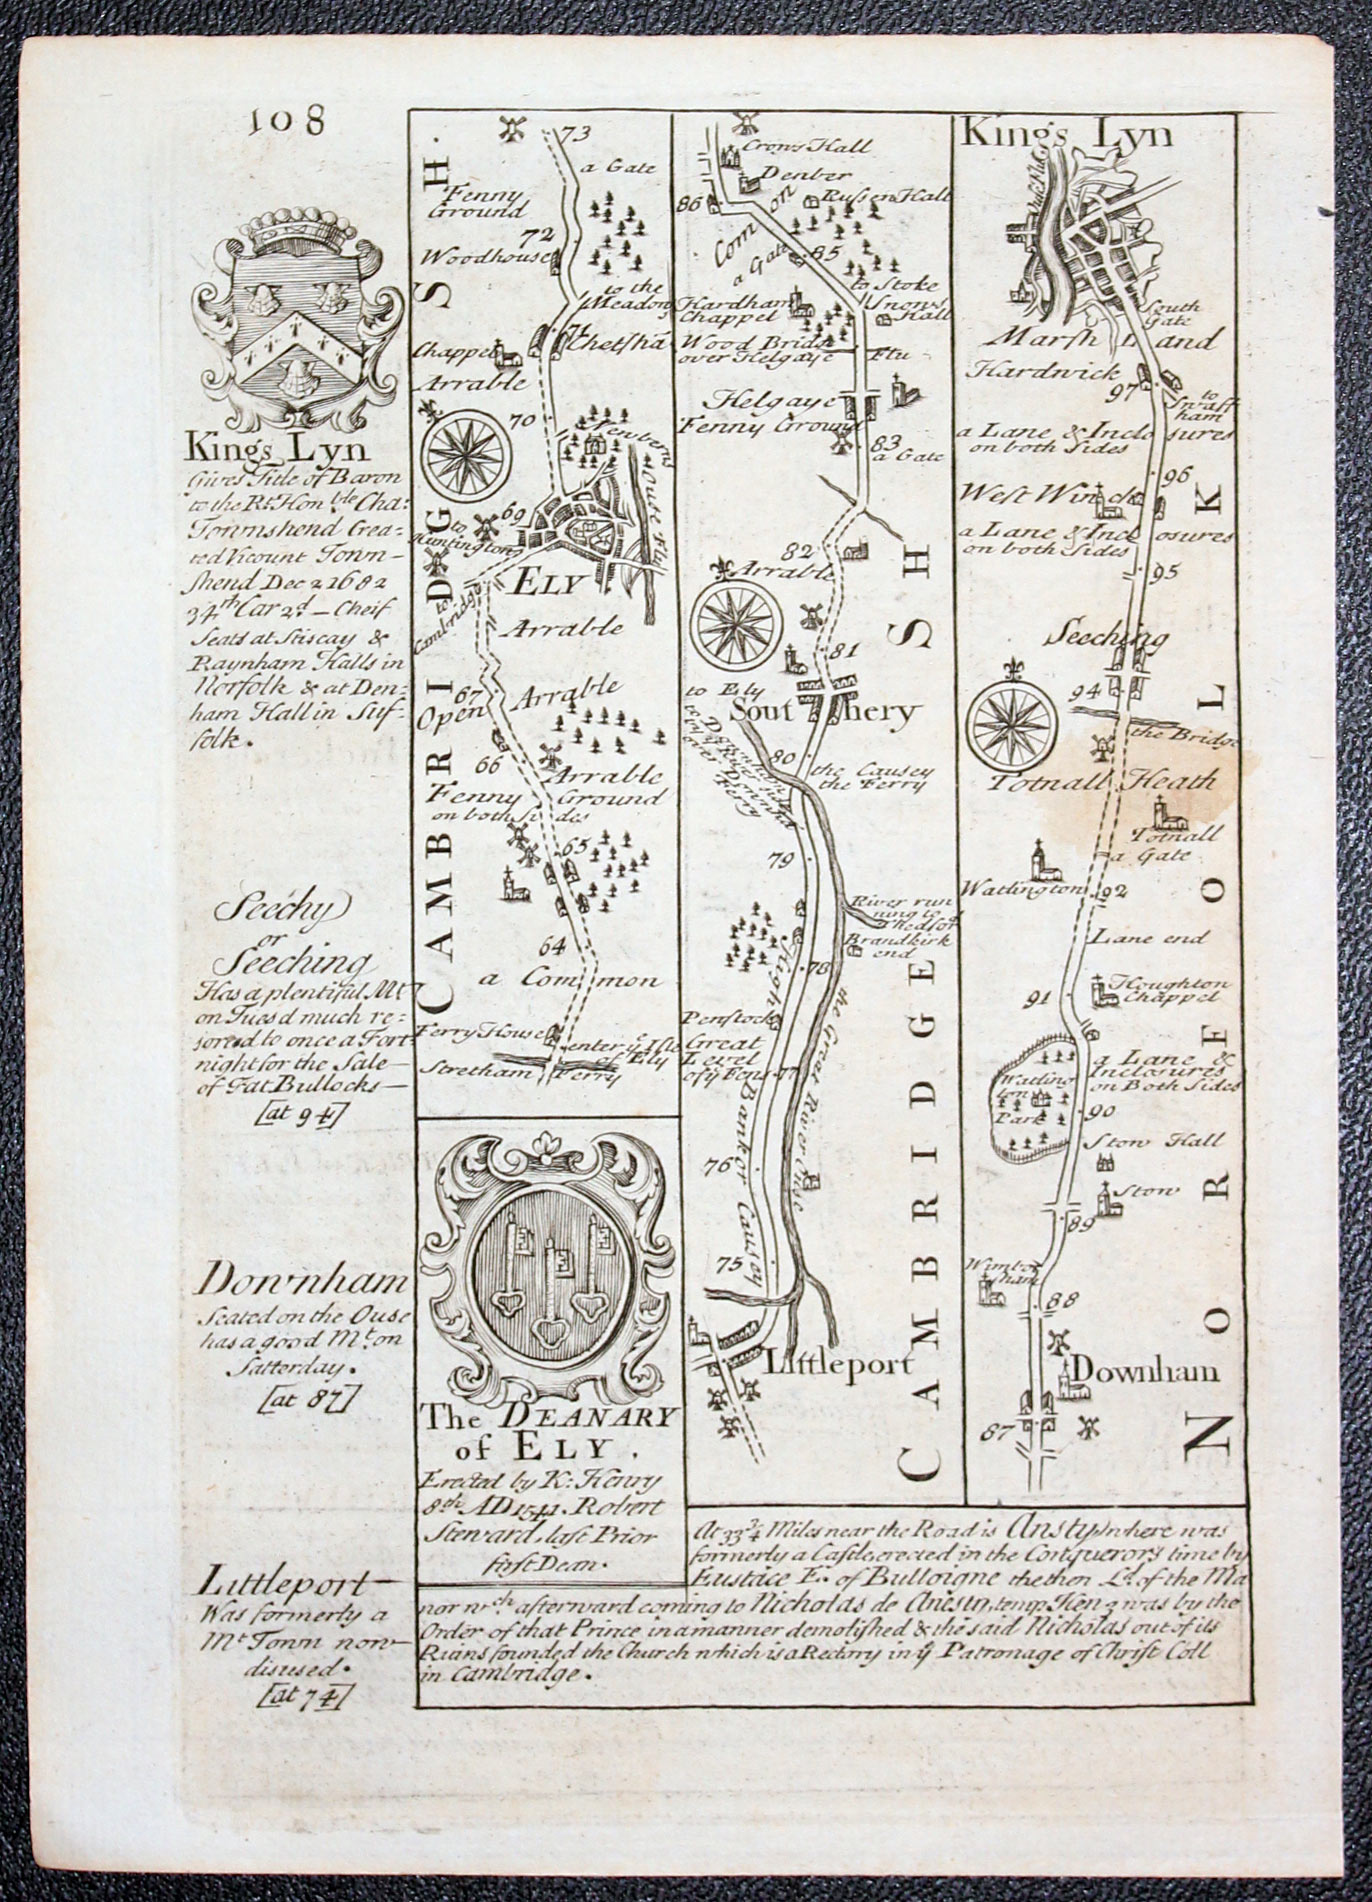 108
Kings Lyn
Gives Title of Baron
to the Rt. Honble Cha:
Townshend Crea=
ted Vicount Town-
shend Dec 2 1682
34th Car 2d - Cheif
Seats at Stiscay &
Raynham Halls in
Norfolk & at Den=
ham Hall in Suf-
folk.
Seechy
or
Seeching
Has a plentiful Mt
on Tuesd much re:
sored to once a Fort
night for the Sale
of Fat Bullocks
[at 94]
Downham
Seated on the Ouse
has a good Mt. on
Satterday.
[at 87]
Littleport
Was formerly a
Mt Town now
disused.
[at 74]
CAMBRIDG SH.
73
a Gate
Fenny
Ground
72
Woodhouse
to the
Meadows
71
Chetsha
Chappel
Arrable
70
Newberns
House Fly
69
to
Huntington
ELY
to
Cambridge
Arrable
67
Arrable
Open
66
Arrable
Fenny Ground
on both Sides
65
64
a Common
Ferry House
enter ye Isle
of Ely
Stretham Ferry
The DEANARY
of ELY.
Erected by K: Henry
8th AD 1541. Robert
Steward, last Prior
first Dean.
Crows Hall
Denber
86
Russen Hall
Com on
a Gate
85
to Stoke
Hardham
Chappel
Snows
Hall
Wood Bridg
over Helgaye
Flu
Helgaye
Fenny Ground
83
a Gate
82
Arrable
81
to Ely
Southery
80
the Causey
the Ferry
79
River run
ning to
Brandkirk
end
78
High
Penstock
the Great River Ouse
Great
Level
of ye Fens
77
Bank or Causey
76
75
Littleport
CAMBRIDGE SH
Kings Lyn
South
Gate
Marsh land
Hardwick
97
to
Swaff
ham
a Lane & Inclosures
on both Sides
96
West Winch
a Lane & Inclosures
on both Sides
95
Seeching
94
the Bridge
Totnall Heath
Totnall
a Gate
Watlington
92
Lane end
91
Houghton
Chappel
a Lane &
Inclosures
on Both Sides
Watling
ton
Park
90
Stow Hall
Stow
89
Wimbot
sham
88
Downham
87
NORFOLK
At 33 3/4 Miles near the Road is Ansty, where was
formerly a Castle, erected in the Conquerors time by
Eustace E. of Bulloigne the then Ld. of the Ma
nor wch. afterward coming to Nicholas de Anestn, temp. Hen 3 was by the
Order of that Prince in a manner demolished & the said Nicholas out of its
Ruins founded the Church which is a Rectory in ye Patronage of Christ Coll
in Cambridge.